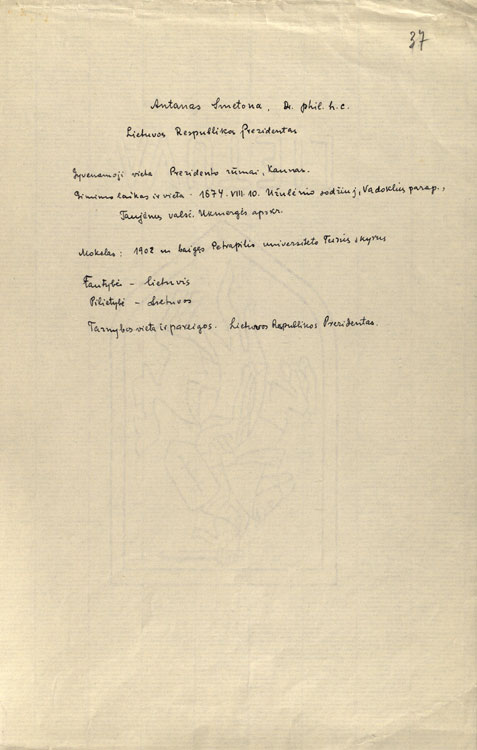 37
Antanas Smetona, Dr. phil. h. c.
Lietuvos Respublikos Prezidentas
Gyvenamoji vieta Prezidento rūmai, Kaunas.
Gimimo laikas ir vieta - 1874.VIII.10. Užulėnio sodžiuj, Vadoklių parap.,
Taujėnų valsč. Ukmergės apskr.
Mokslas: 1902 m baigęs Petrapilio universiteto Teisių skyrius
Tautybė - lietuvis
Pilietybė - Lietuvos
Tarnybos vieta ir pareigos. Lietuvos Republikos Prezidentas.